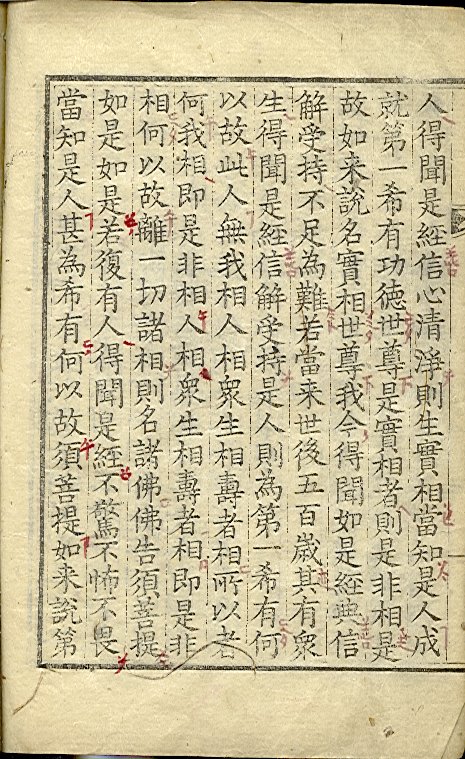 人得聞是經信心清淨則生實相當知是人成
就第一希有功德世尊是實相者則是非相是
故如来說名實相世尊我今得聞如是經典信
解受持不足為難若當来世後五百歲其有衆
生得聞是經信解受持是人則為第一希有何
以故此人無我相人相衆生相壽者相所以者
何我相即是非相人相衆生相壽者相即是非
相何以故離一切諸相則名諸佛佛告須菩提
如是如是若復有人得聞是經不驚不怖不畏
當知是人甚為希有何以故須菩提如来說第